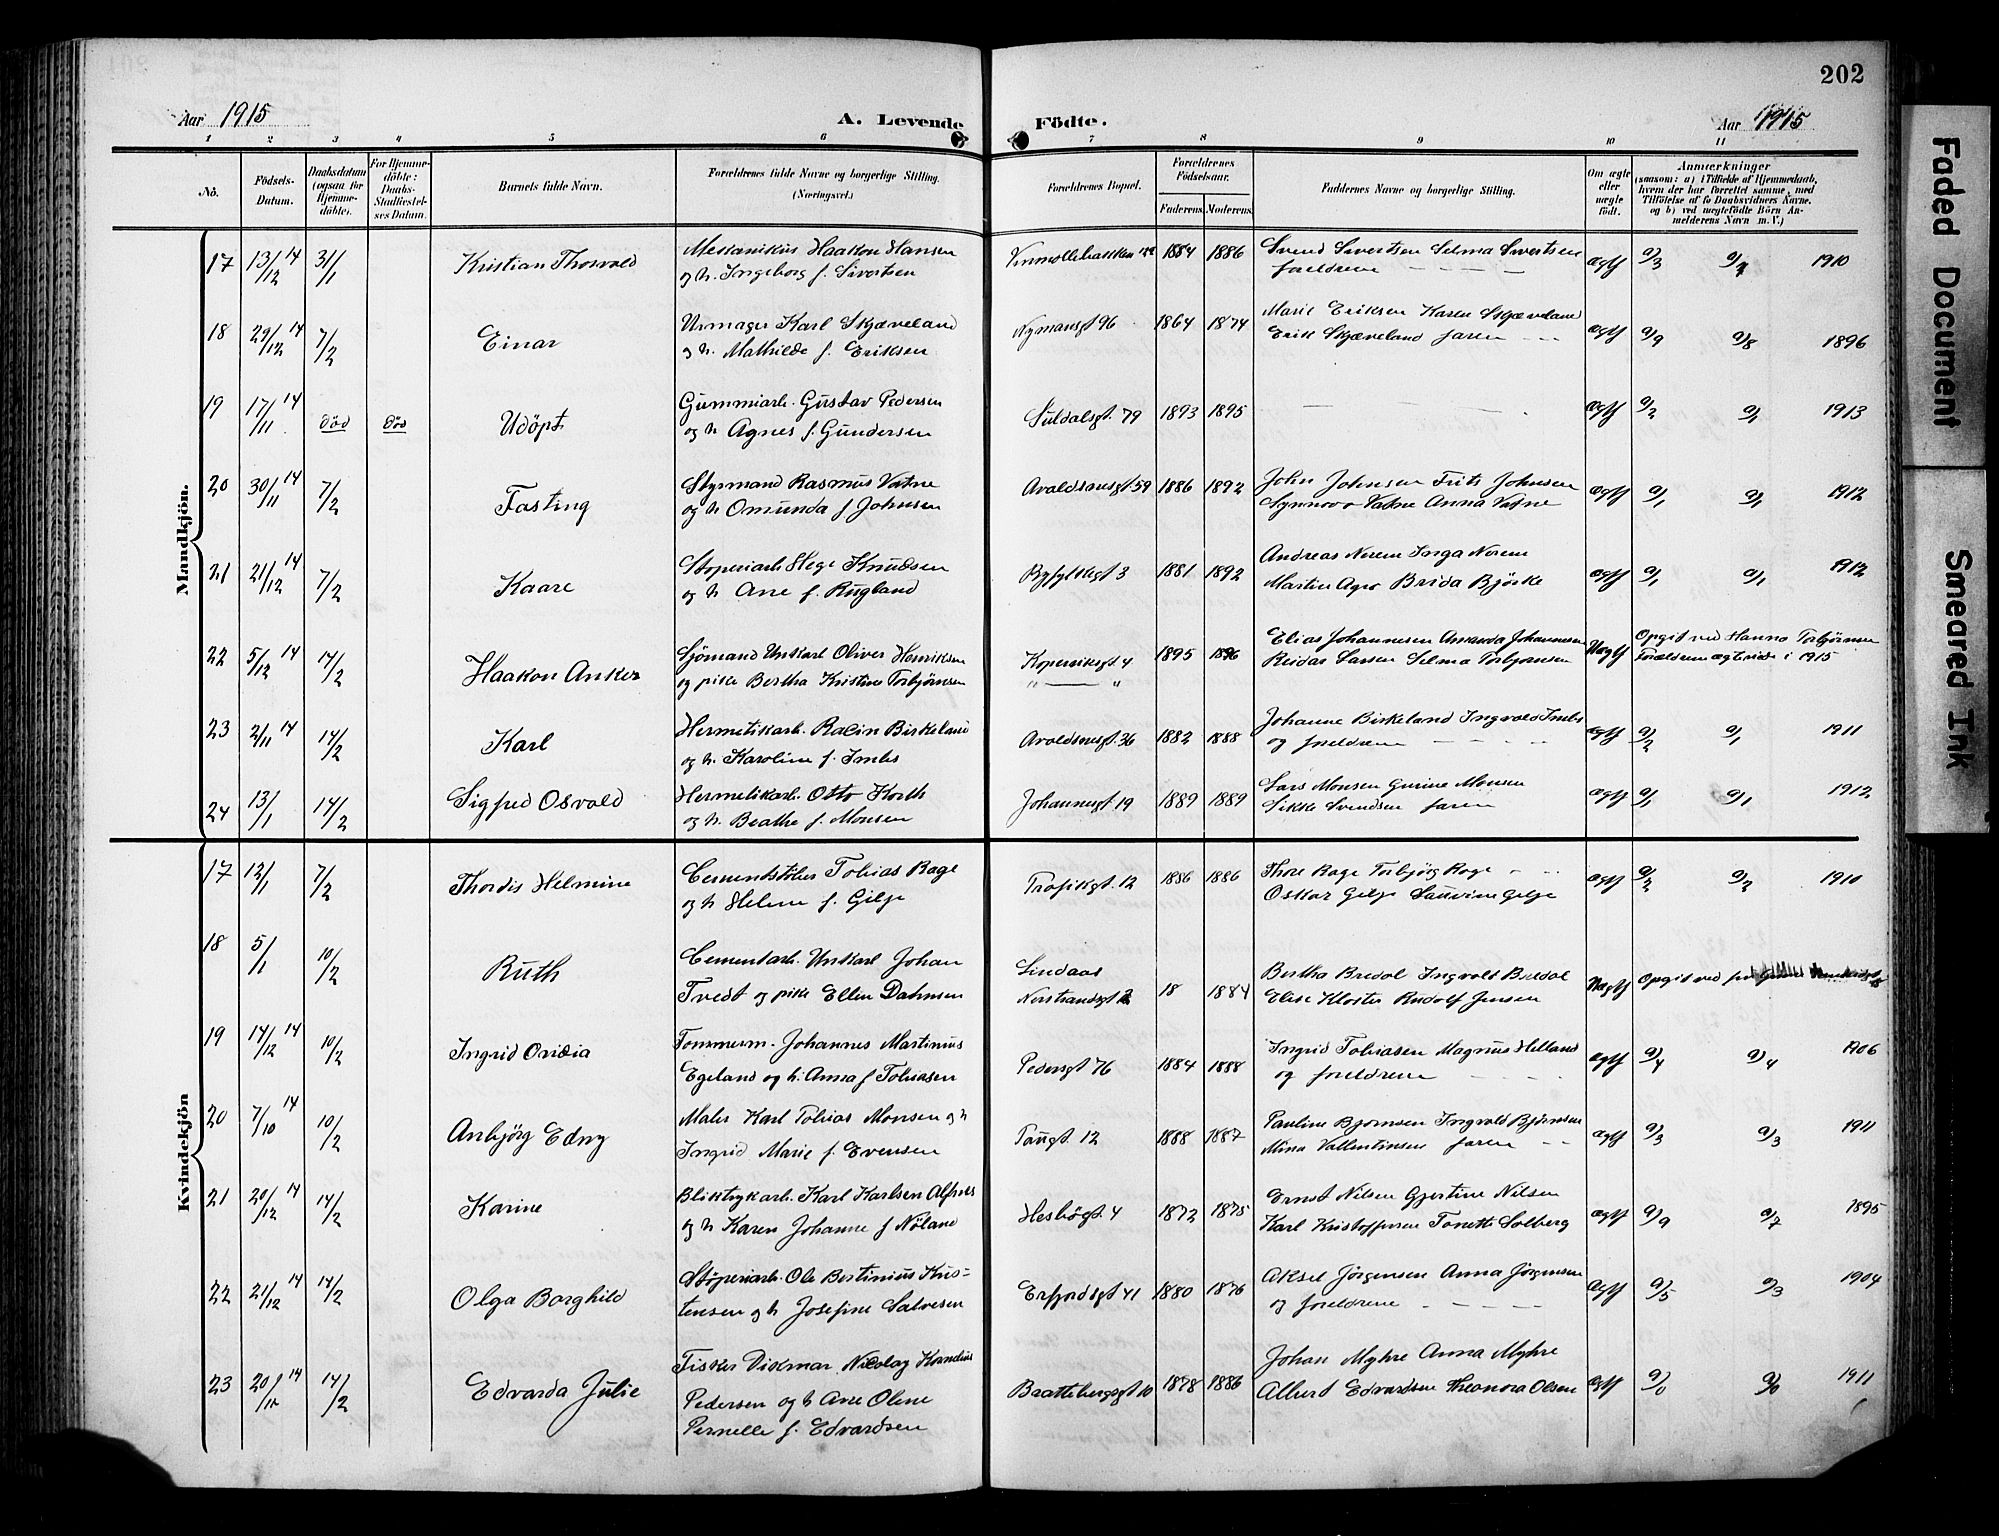 202
Aar 1915
A. Levende
Födte.
Aar 1915
1 2 3 4 5 6 7 8 9 10 11
No.
Födsels-Datum.
Daabsdatum (ogsaa for Hjemmedöbte).
For Hjemmedöbte: Daabs-Stadfæstelses Datum.
Barnets fulde Navn.
Forældrenes fulde Navne og borgerlige Stilling. (Næringsvei.)
Forældrenes Bopæl.
Forældrenes Födselsaar.
Faderens. Moderens.
Faddernes Navne og borgerlige Stilling.
Om ægte eller uægte födt.
Anmærkninger
(saasom: a) i Tilfælde af Hjemmedaab, hvem der har forrettet samme, med Tilföielse af to Daabsvidners Navne, og b) ved uægtefödte Börn Anmelderens Navn m. V.)
Mandkjön.
17 13/12 14 31/1 Kristian Thorvald Mekanikus Haakon Hansen 1884 1886 Svend Sivertsen Selma Sivertsen ægte 9/3 1910
og h. Ingeborg f. Sivertsen foreldrene
18 29/12 14 7/2 Einar Urmager Karl Skjæveland Nymansgt 96 1864 1874 Marie Eriksen Karen Skjæveland ægte 9/9 9/8 1896
og h. Mathilde f. Eriksen Erik Skjæveland faren
19 17/11 14 död död Udöpt Gummiarb. Gustav Pedersen Suldalsgt. 79 1893 1895 ægte 9/2 9/1 1913
og h Agnes f. Gundersen
20 30/11 14 7/2 Fasting Styrmand Rasmus Vatne Avaldsnesgt 59 1886 1892 John Johnsen Frits Johnsen ægte 9/1 9/1 1912
og h Omunda f Johnsen Synnove Vatne Anna Vatne
21 21/12 14 7/2 Kaare Støperiarb Hege Knudsen 3 1881 1892 Andreas Norem Inga Norem ægte 9/1 9/1 1912
og h Ane f. Rugland Martin Brida Bjørke
22 5/12 14 14/2 Haakon Anker Sjömand Unkarl Oliver Henriksen Kopervikgt 4 1895 1896 Elias Johannesen Amanda Johannesen Uægte Opgit ved Hanna Torbjørnsen
og pike Bertha Kristine Torbjørnsen Reidar Larsen Selma Torbjørnsen i 1915
23 2/11 14 14/2 Karl Hermetikarb. Birkeland Avaldsnesgt. 36 1882 1888 Johanne Birkeland Ingvald Imbs ægte 9/2 9/1 1911
og h. Karoline f. Imbs og foreldrene
24 13/1 14/2 Sigfred Osvald Hermetikarb. Otto Korth Johannesgt 19 1889 1889 Lars Monsen Gurine Monsen ægte 9/1 9/1 1912
og h. Beathe f. Monsen Sikke Svendsen faren
Kvindekjön
17 12/1 7/2 Thordis Helmine Cementstöber Tobias Rage Trafikgt. 12 1886 1886 Thore Rage Torbjörg Rage ægte 9/2 9/2 1910
og h Helene f. Gilje Oskar Gilje Lauvine Gilje
18 5/1 10/2 Ruth Cementarb. Unkarl Johan Lindaas 18 1884 Bertha Bredal Ingvald Bredal Uægte Opgit ved
Tvedt og pike Ellen Dahmsen Nerstrandsgt 2 Elise Kloster Rudolf Jensen
19 14/12 14 10/2 Ingrid Ovidia Tømmerm. Johannes Martinius Pedersgt 76 1884 1888 Ingrid Tobiasen Magnus Helland ægte 9/4 9/4 1906
Egeland og h. Anna f Tobiasen og foreldrene
20 7/10 14 10/2 Anbjörg Edny Maler Karl Tobias Monsen og h Taugt. 12 1888 1887 Pauline Bjørnsen Ingvald Bjørnsen ægte 9/3 9/3 1911
Ingrid Marie f. Evensen Mina Vallentinsen faren
21 20/12 14 14/2 Karine Bliktrykarb. Karl Karlsen Alfnes Hesbögt. 4 1872 1875 Ernst Nilsen Gjertine Nilsen ægte 9/9 9/7 1895
og h Karen Johanne f Nöland Karl Kristoffersen Tonette Solberg
22 21/12 14 14/2 Olga Borghild Støperiarb. Ole Bertinius Kris- Erfjordsgt 41 1880 1876 Aksel Jörgensen Anna Jörgensen ægte 9/5 9/3 1904
tensen og h Josefine Salvesen og foreldrene
23 20/12 14 14/2 Edvarda Julie Fisker Dikmar Nicolay Kornelius Brattebergsgt 10 1878 1886 Johan Myhre Anna Myhre ægte 9/0 9/0 1911
Pedersen og h Ane Olene Albert Edvardsen Theonora Olsen
Pernelle f. Edvardsen
Faded Document
Smeared Ink